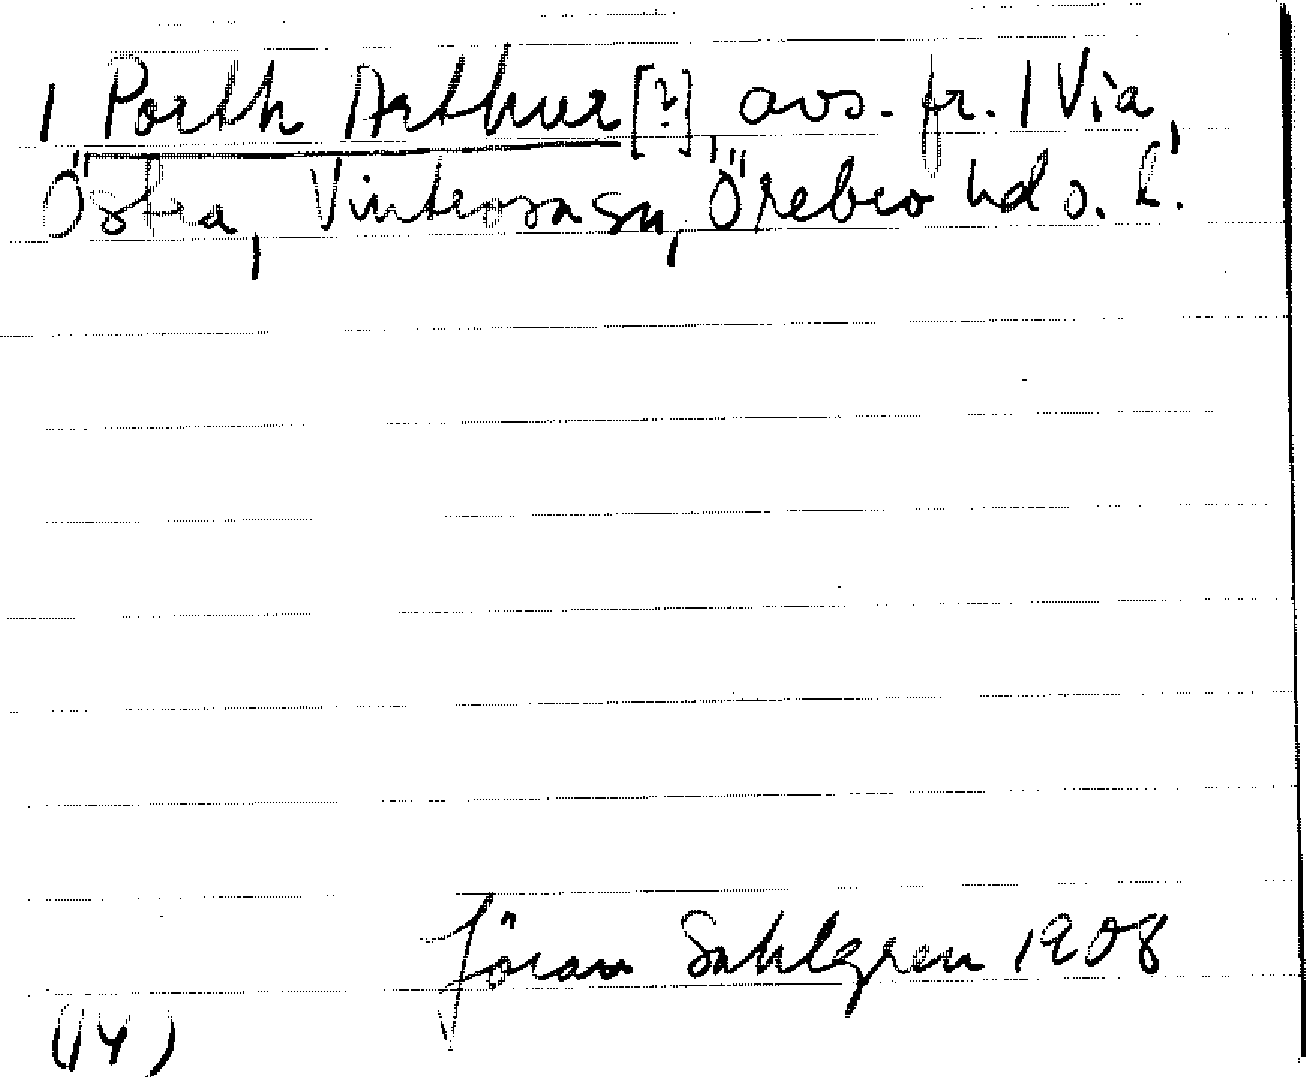 1 Porth Arthur [?], avs. fr. 1 Via,
Östra, Vinterosa sn, Örebro hd ö. l.
Jöran Sahlgren 1908
(14)